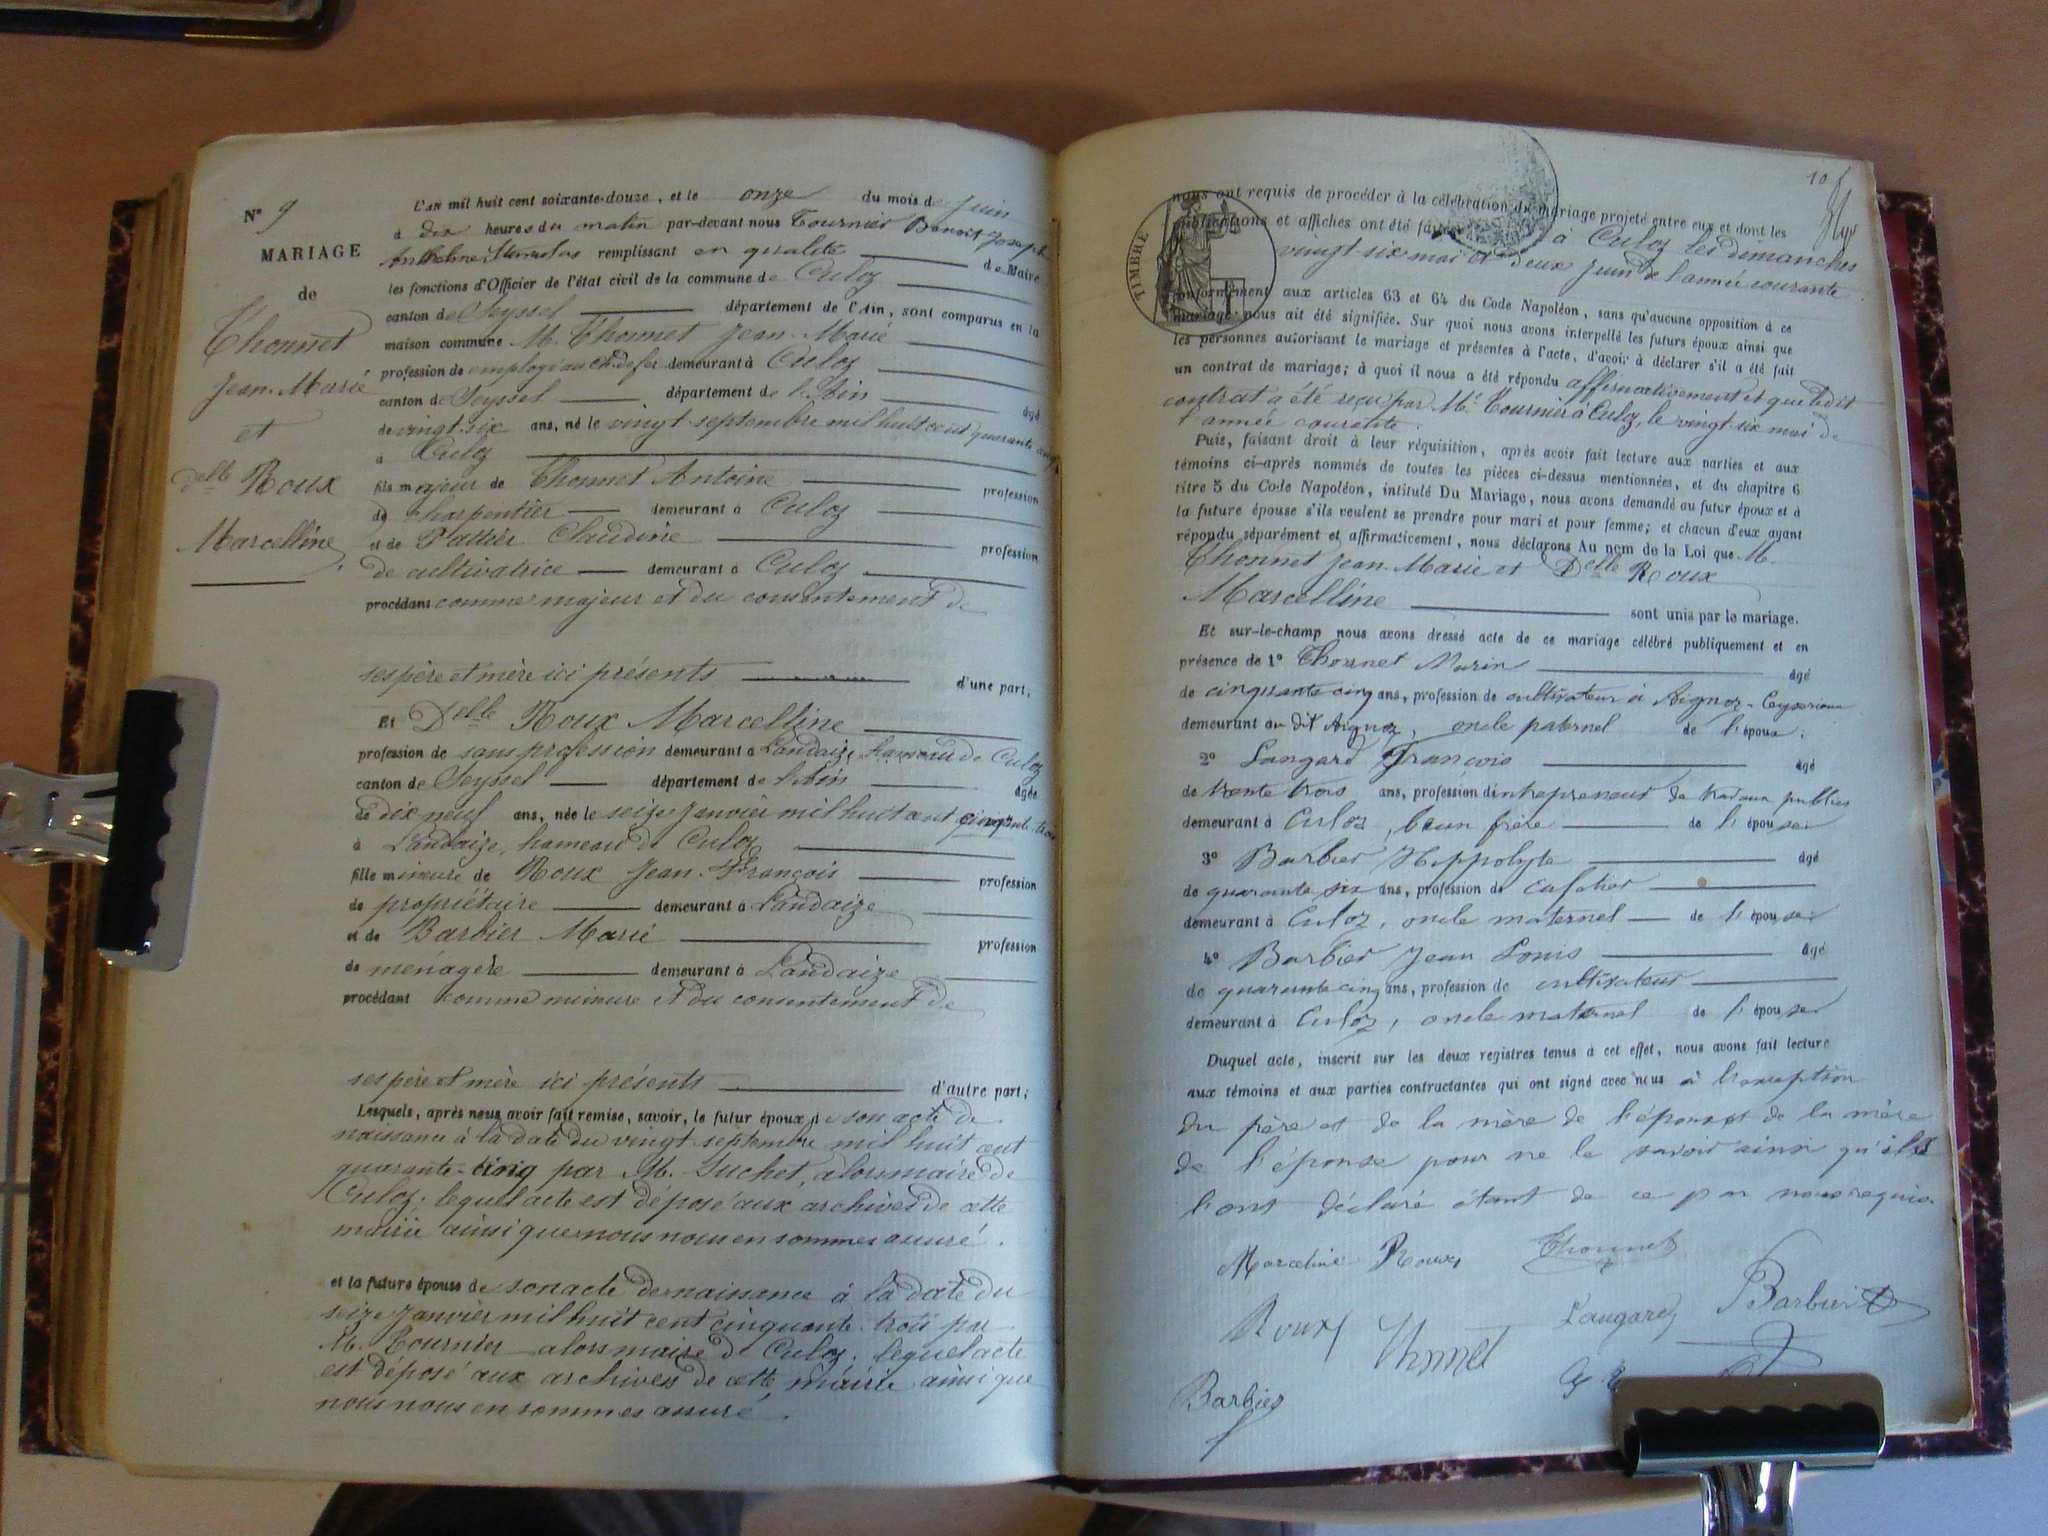 N° 9
MARIAGE
de
Thonnet
Jean-Marie
et
Delle Roux
Marcelline
L'an mil huit cent soixante-douze, et le onze du mois de Juin
à dix heures du matin par-devant nous Tournier Benoit Joseph
Anthelme remplissant en qualité de Maire
les fonctions d'Officier de l'état civil de la commune de Culoz
canton de Seyssel département de l'Ain, sont comparus en la
maison commune M. Thonnet Jean-Marie
profession de employé au ch. de fer demeurant à Culoz
canton de Seyssel département de l'Ain âgé
de vingt-six ans, né le vingt septembre mil huit cent quarante cinq
à Culoz
fils majeur de Thonnet Antoine profession
de charpentier demeurant à Culoz
et de Claudine profession
de cultivatrice demeurant à Culoz
procédant comme majeur et du consentement de
ses père et mère ici présents d'une part,
Et Delle Roux Marcelline
profession de sans profession demeurant à Landaize, hameau de Culoz
canton de Seyssel département de l'Ain âgée
de dix neuf ans, née le seize Janvier mil huit cent cinquante trois
à Landaize, hameau de Culoz
fille mineure de Roux Jean-François profession
de propriétaire demeurant à Landaize
et de Barbier Marie profession
de ménagère demeurant à Landaize
procédant comme mineure et du consentement de
ses père et mère ici présents d'autre part;
Lesquels, après nous avoir fait remise, savoir, le futur époux de son acte de
naissance à la date du vingt septembre mil huit cent
quarante-cinq par M. Suchet, alors maire de
Culoz; lequel acte est déposé aux archives de cette
mairie ainsi que nous nous en sommes assuré.
et la future épouse de son acte de naissance à la date du
seize Janvier mil huit cent cinquante-trois par
M. Tournier alors maire de Culoz, lequel acte
est déposé aux archives de cette mairie ainsi que
nous nous en sommes assuré.
10
TIMBRE
nous ont requis de procéder à la célébration du mariage projeté entre eux et dont les
publications et affiches ont été faites à Culoz les dimanches
vingt six mai et deux Juin de l'année courante.
conformément aux articles 63 et 64 du Code Napoléon, sans qu'aucune opposition à ce
mariage nous ait été signifiée. Sur quoi nous avons interpellé les futurs époux ainsi que
les personnes autorisant le mariage et présentes à l'acte, d'avoir à déclarer s'il a été fait
un contrat de mariage; à quoi il nous a été répondu affirmativement et que ledit
contrat a été reçu par Me Tournier à Culoz, le vingt-six mai de
l'année courante.
Puis, faisant droit à leur réquisition, après avoir fait lecture aux parties et aux
témoins ci-après nommés de toutes les pièces ci-dessus mentionnées, et du chapitre 6
titre 5 du Code Napoléon, intitulé Du Mariage, nous avons demandé au futur époux et à
la future épouse s'ils veulent se prendre pour mari et pour femme; et chacun d'eux ayant
répondu séparément et affirmativement, nous déclarons Au nom de la Loi que M.
Thonnet Jean-Marie et Delle Roux
Marcelline sont unis par le mariage.
Et sur-le-champ nous avons dressé acte de ce mariage célébré publiquement et en
présence de 1° Thonnet Marin âgé
de cinquante cinq ans, profession de cultivateur à Aignoz-Ceyzerieu
demeurant au dit Aignoz, oncle paternel de l'époux;
2° Langard François âgé
de trente trois ans, profession d'intrepreneur de travaux publics
demeurant à Culoz, beau frère de l'épouse;
3° Barbier Hippolyte âgé
de quarante six ans, profession de cafetier
demeurant à Culoz, oncle maternel de l'épouse;
4° Barbier Jean Louis âgé
de quarante cinq ans, profession de cultivateur
demeurant à Culoz, oncle maternel de l'épouse
Duquel acte, inscrit sur les deux registres tenus à cet effet, nous avons fait lecture
aux témoins et aux parties contractantes qui ont signé avec nous à l'exception
du père et de la mère de l'époux et de la mère
de l'épouse pour ne le savoir ainsi qu'ils
l'ont déclaré étant de ce par nous requis.
Marceline Roux Thonnet
Roux Thonnet Langard Barbier
Barbier